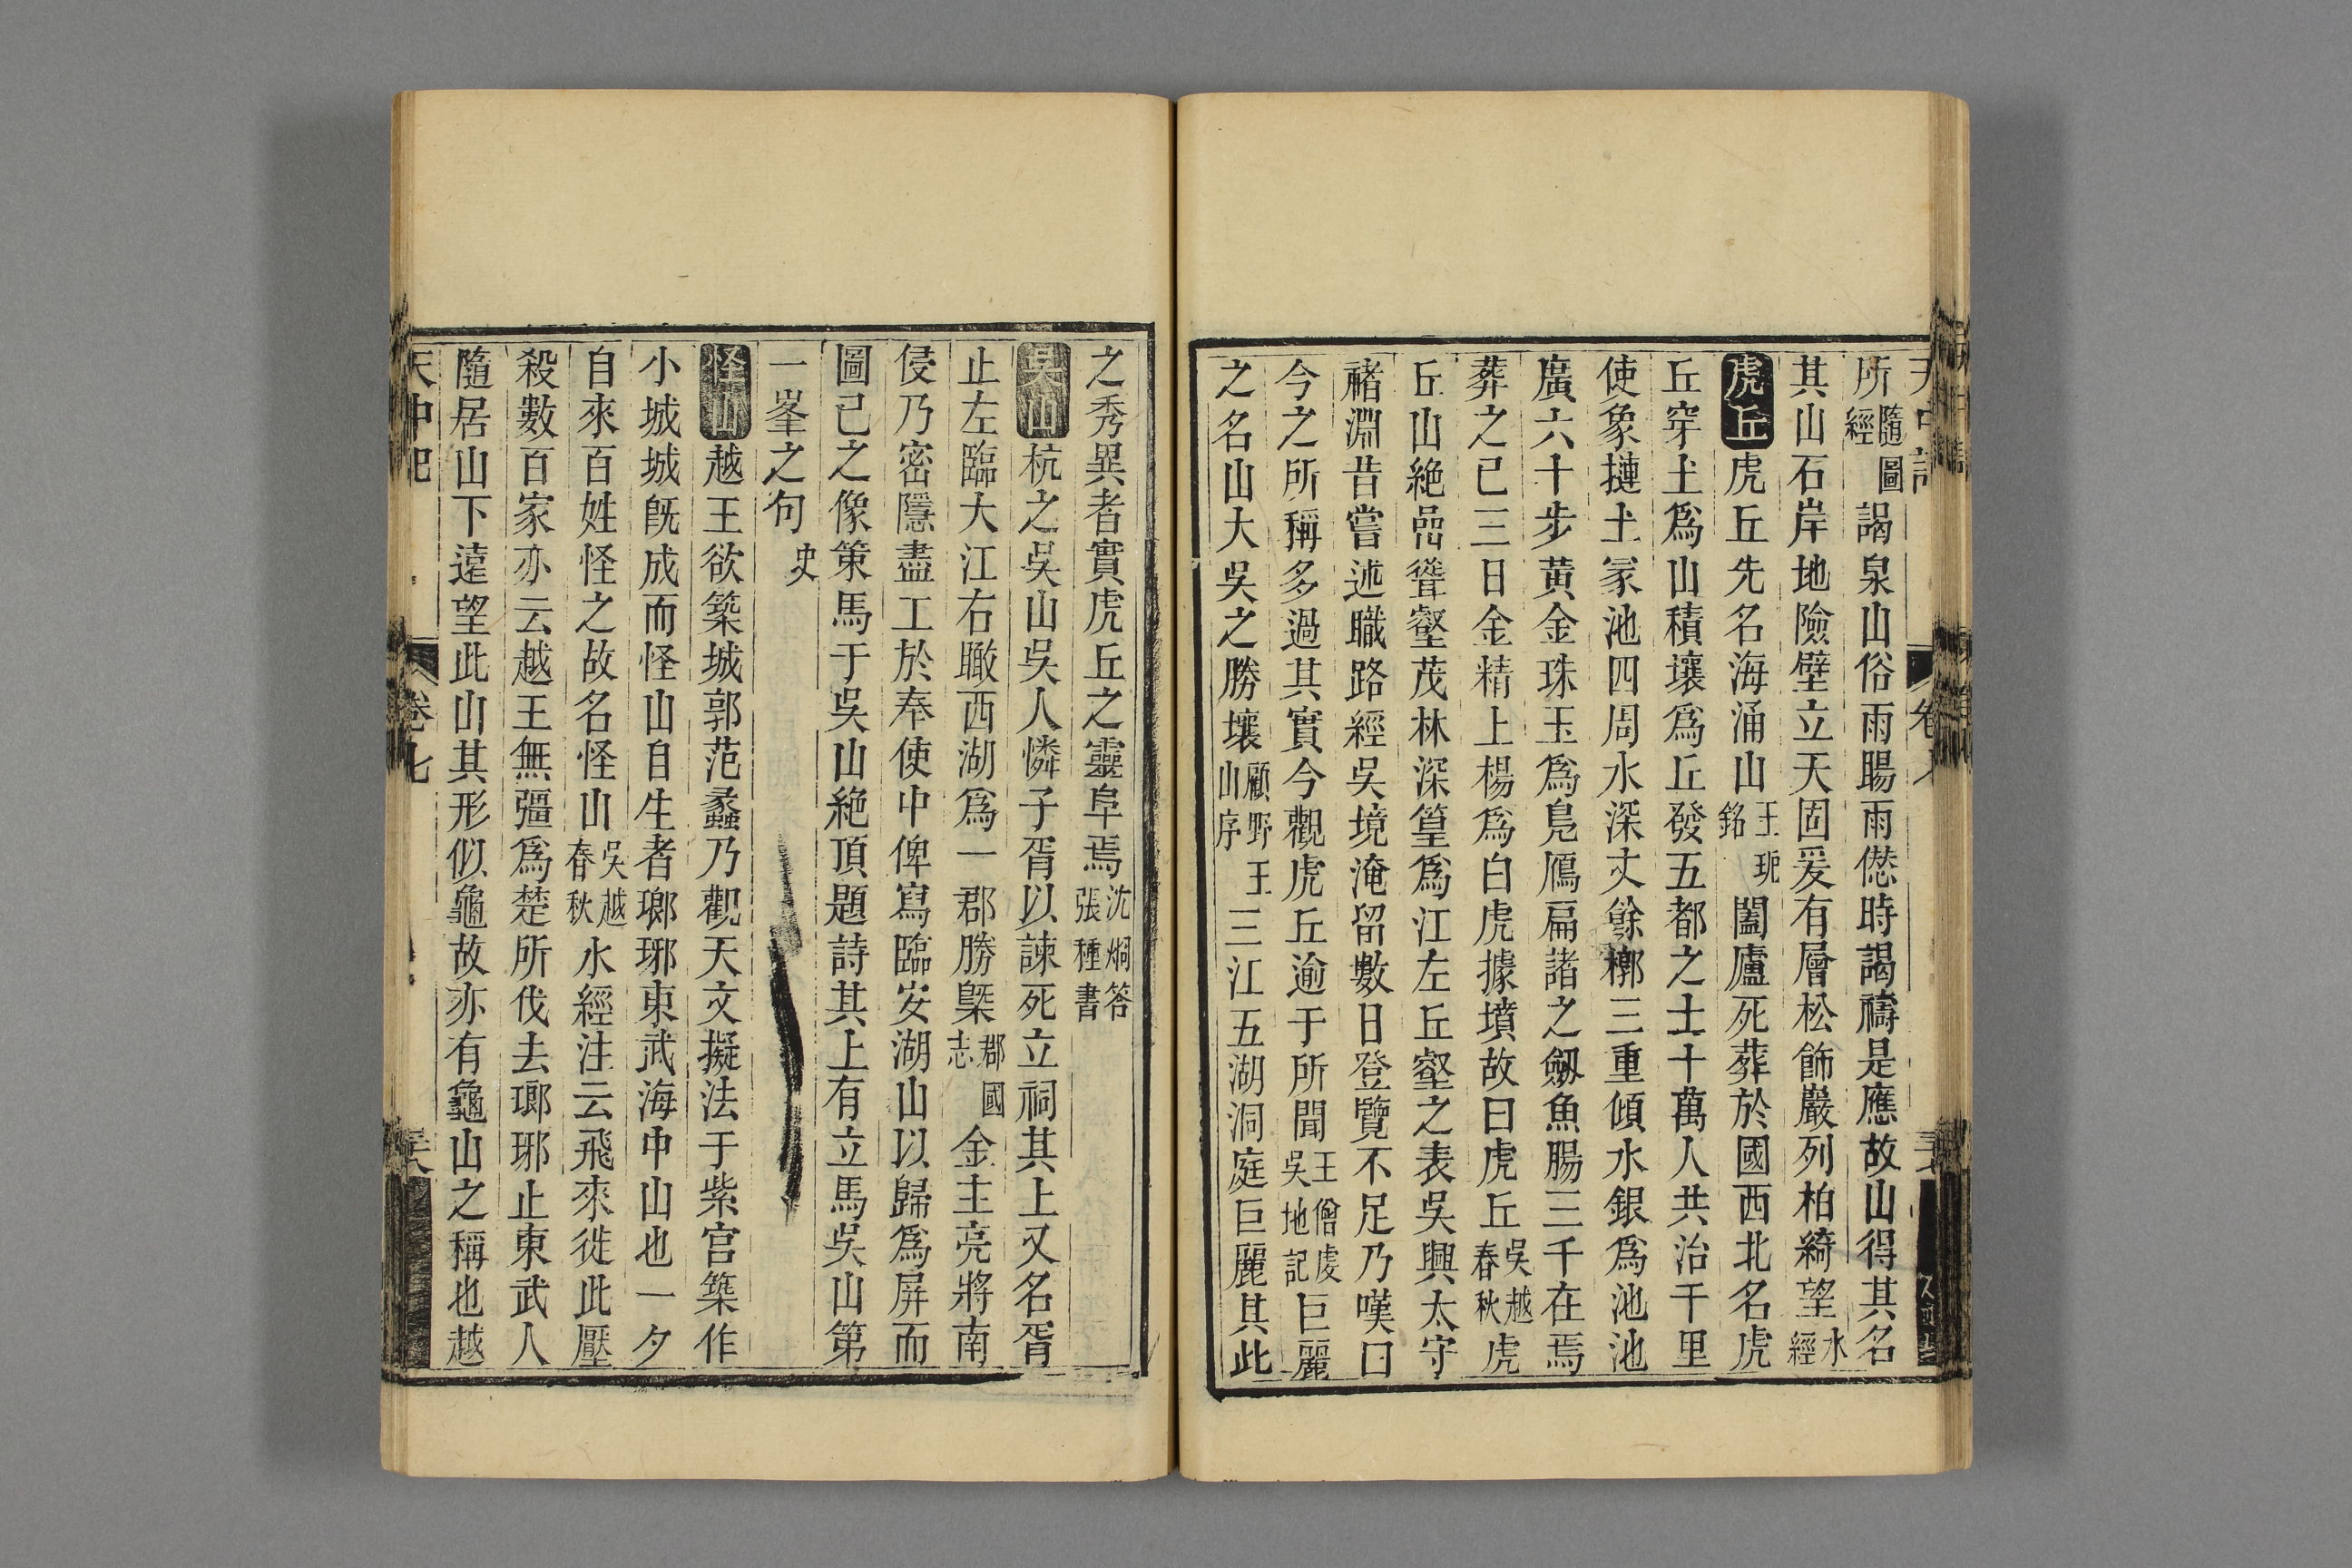 所隨圖經謁泉山俗雨暘雨僽時謁禱是應故山得其名
其山石岸地險壁立天固爰有層松飾巖列柏綺望水經
虎丘虎丘先名海涌山王玭銘闔廬死葬於國西北名虎
丘穿土爲山積壤爲丘發五都之士十萬人共治千里
使象摙土冢池四周水深丈餘槨三重傾水銀爲池池
廣六十步黄金珠玉爲鳧鴈扁諸之劔魚腸三千在焉
葬之已三日金精上楊爲白虎據墳故曰虎丘吳越春秋虎
丘山絶嵒聳壑茂林深篁爲江左丘壑之表吳興太守
禇淵昔嘗述職路經吳境淹留數日登覽不足乃嘆曰
今之所稱多過其實今觀虎丘逾于所聞王僧虔吳地記巨麗
之名山大吳之勝壤顧野王山序三江五湖洞庭巨麗其此
之秀異者實虎丘之靈阜焉沈烱答張種書
吳山杭之吳山吳人憐子胥以諫死立祠其上又名胥
止左臨大江右瞰西湖爲一郡勝槩郡國志金主亮將南
侵乃密隱盡工於奉使中俾寫臨安湖山以歸爲屏而
圖己之像策馬于吳山絶頂題詩其上有立馬吳山第
一峯之句史
怪山越王欲築城郭范蠡乃觀天文擬法于紫宫築作
小城城旣成而怪山自生者瑯琊東武海中山也一夕
自來百姓怪之故名怪山吳越春秋水經注云飛來徙此壓
殺數百家亦云越王無彊爲楚所伐去瑯琊止東武人
隨居山下遠望此山其形似龜故亦有龜山之稱也越
天中記 卷七